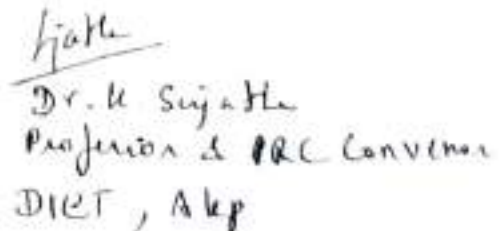 Sjatha
Dr. K Sujatha
Professor & PRC Convenor
DIET, Akp